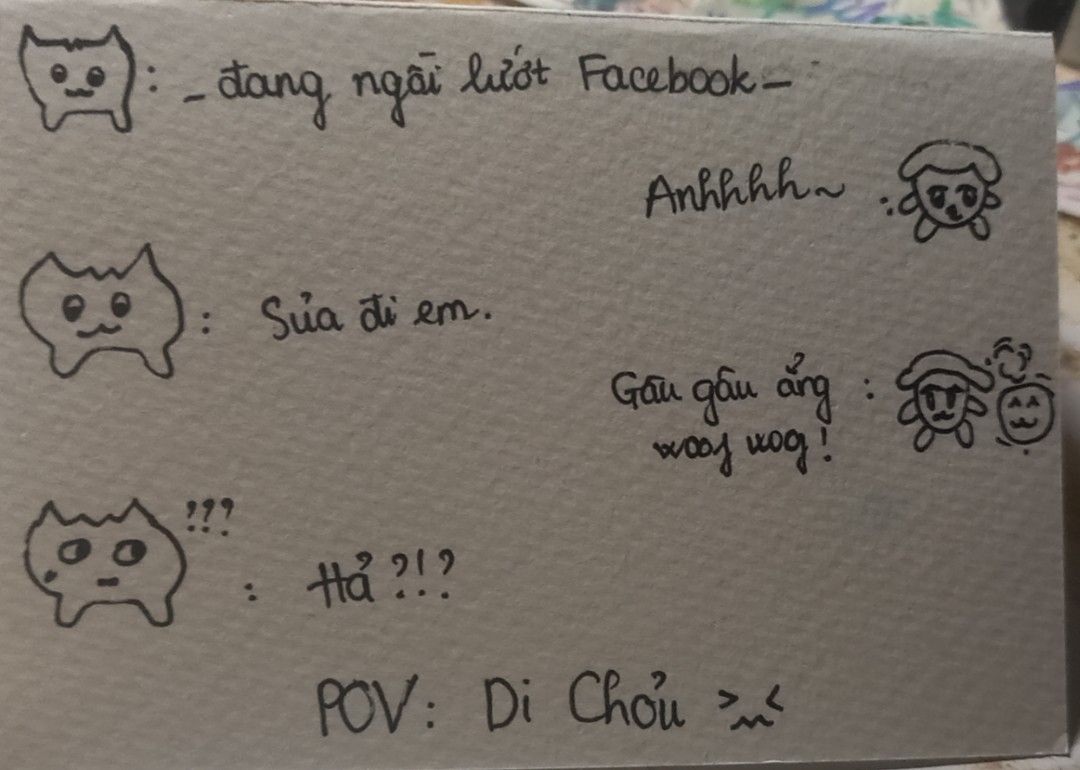 : _ đang ngồi lướt Facebook _
Anhhhh~ :
: Sủa đi em.
Gâu gâu ẳng :
woof woof!
???
: Hả ?!?
POV: Di Chởu >~<